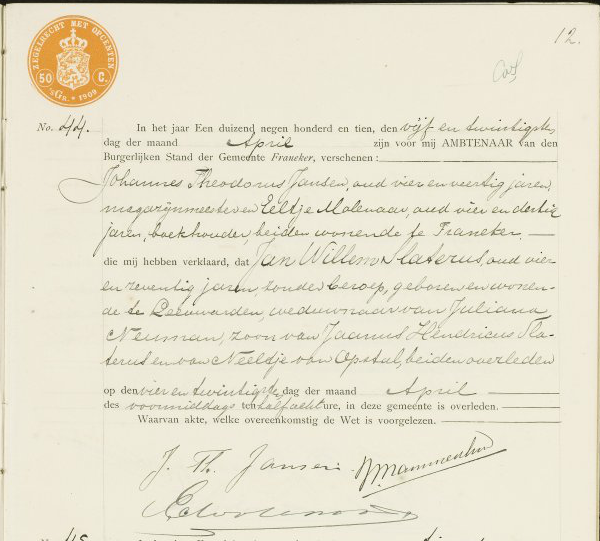 12.
ZEGELRECHT MET OPCENTEN
50 C.
'SGR. * 1909
No. 44. In het jaar Een duizend negen honderd en tien, den vijf en twintigste
dag der maand April zijn voor mij AMBTENAAR van den
Burgerlijken Stand der Gemeente Franeker, verschenen:
Johannes Theodorus Jansen, oud vier en veertig jaren,
magazijnmeester en Eeltje Molenaar, oud vier en dertig
jaren, boekhouder, beiden wonende te Franeker,
die mij hebben verklaard, dat Jan Willem Slaterus, oud vier
en zeventig jaren, zonder beroep, geboren en wonen-
de te Leeuwarden, weduwnaar van Juliana
Neuman, zoon van Jaanus Hendricus Sla-
terus en van Neeltje van Opstal, beiden overleden
op den vier en twintigste dag der maand April
des voormiddags ten half acht ure, in deze gemeente is overleden.
Waarvan akte, welke overeenkomstig de Wet is voorgelezen.
J. Th. Jansen